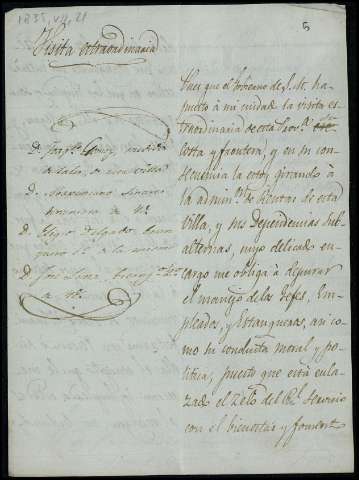 1833, VII, 21
5
Visita extraordinaria
D. Josef Gomez, medidor
D. Maximiano
D. Eligio Delgado,
D. José
Pues que el Gobierno de S. M. ha
puesto à mi cuidado la visita es
traordinaria de esta Prov.ª
Costa y frontera, y en su con
secuencia la estoy girando à
la admin.on de Rentas de esta
Villa, y sus Dependencias sub
alternas, cuyo delicado en
cargo me obliga à depurar
el manejo de los Gefes, Em
pleados, y Estanqueras, asi co
mo su conducta moral y po
litica, puesto que está enla
zado el Zelo del R.l Servicio
con el bienestar y fomento